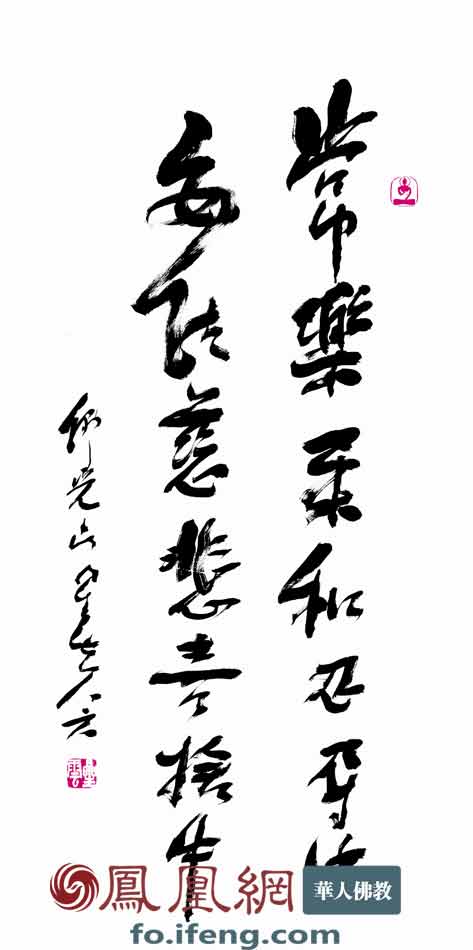 常樂柔和忍辱
安住慈悲喜捨
佛光山星雲八六
鳳凰網
華人佛教
fo.ifeng.com